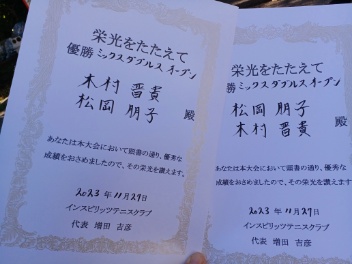 栄光をたたえて
優勝 ミックスダブルス オープン
木村 晋貴
松岡 朋子 殿
あなたは本大会において頭書の通り、優秀な
成績をおさめましたので、その栄光を讃えます。
2023年11月29日
インスピリッツテニスクラブ
代表 増田 吉彦
栄光をたたえて
勝 ミックスダブルス オープン
松岡 朋子
木村 晋貴 殿
あなたは本大会において頭書の通り、優秀な
成績をおさめましたので、その栄光を讃えます。
2023年11月29日
インスピリッツテニスクラブ
代表 増田 吉彦